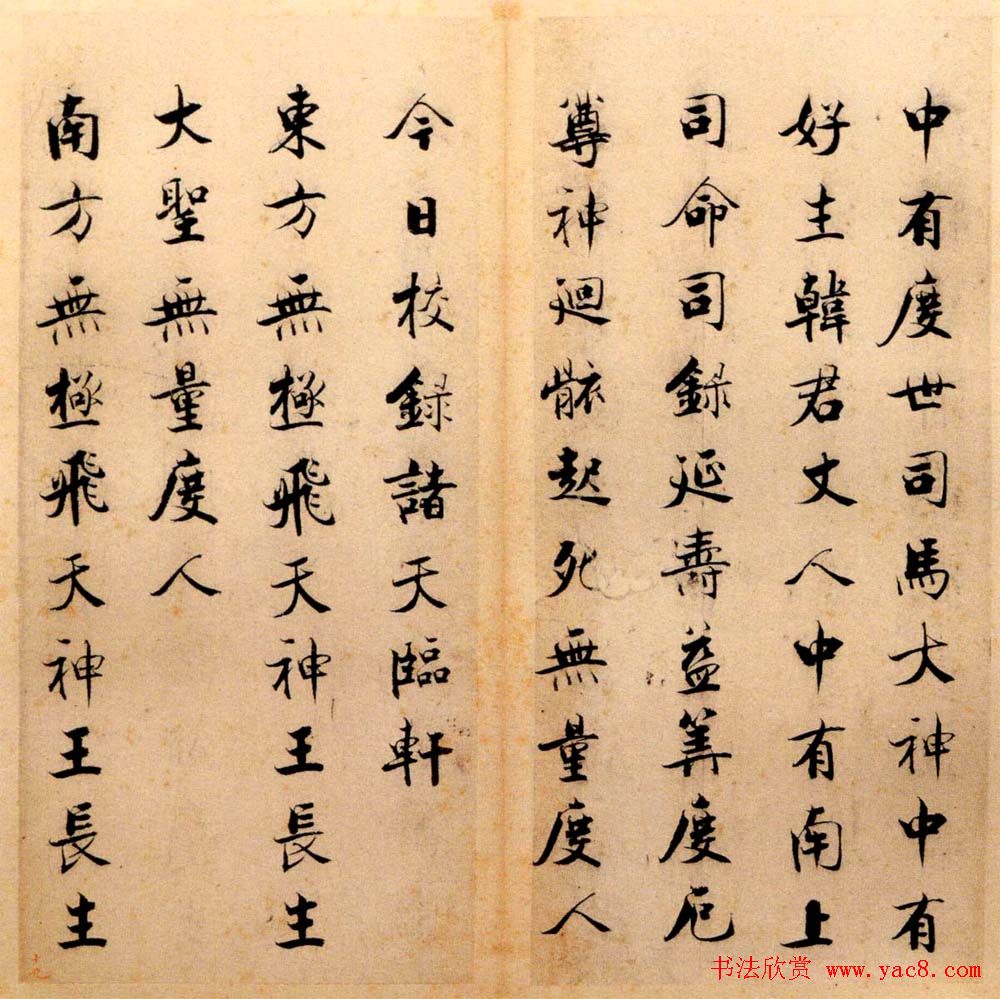 中有度世司馬大神中有
好生韓君丈人中有南上
司命司録延壽益筭度厄
尊神迴骸起死無量度人
今日校録諸天臨軒
東方無極飛天神王長生
大聖無量度人
南方無極飛天神王長生
十九
书法欣赏 www.yac8.com